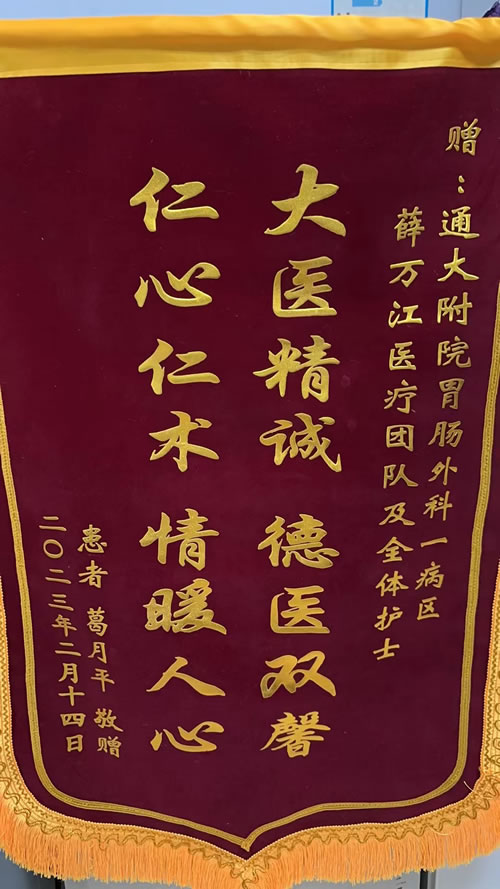 赠：通大附院胃肠外科一病区
薛万江医疗团队及全体护士
大医精诚 德医双馨
仁心仁术 情暖人心
患者 葛月平 敬赠
二〇二三年二月十四日